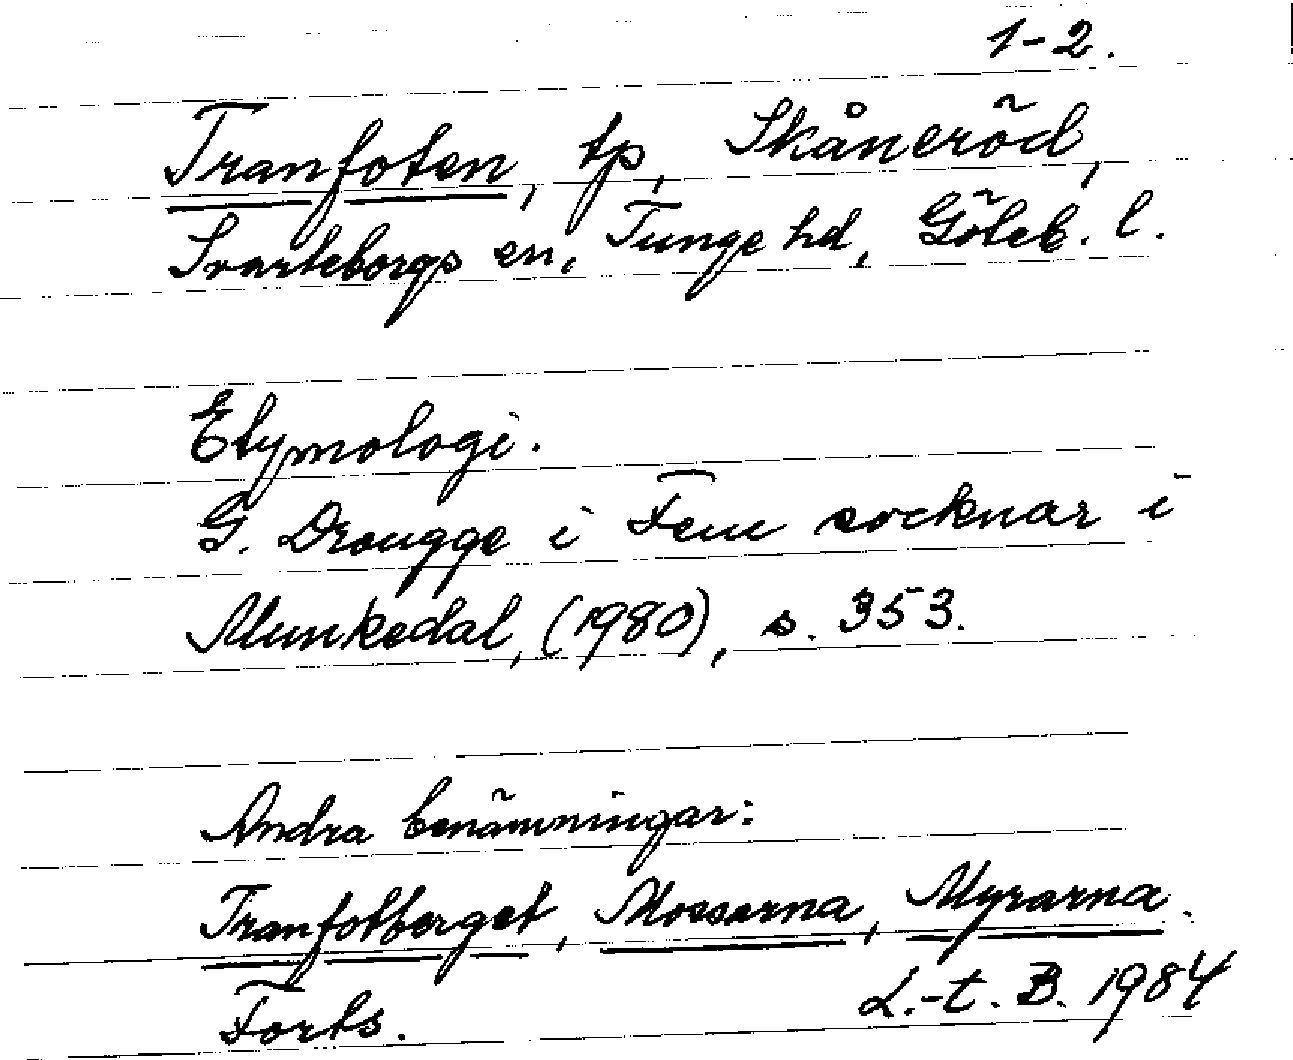 1-2.
Tranfoten, tp, Skåneröd,
Svarteborgs sn, Tunge hd, Göteb. l.
Etymologi.
G. Drougge i Fem socknar i
Munkedal, (1980), s. 353.
Andra benämningar:
Tranfotberget, Mossarna, Myrarna.
Forts. L.-t. B. 1984